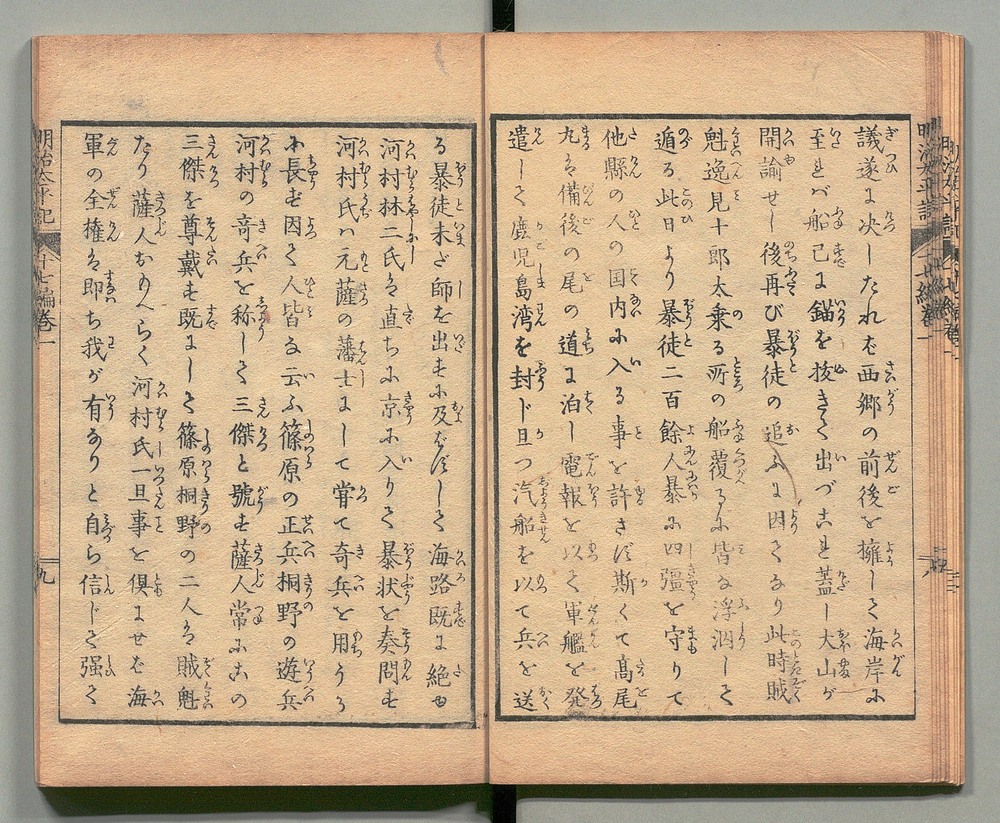 議遂に决したれば西郷の前後を擁して海岸に
至れバ船已に錨を抜きて出づこれ蓋し大山が
開諭せし後再び暴徒の追ふに因てなり此時賊
魁逸見十郎太乗る所の船覆るに皆な浮泅して
遁る此日より暴徒二百餘人暴に四彊を守りて
他縣の人の国内に入る事を許さず斯くて髙尾
丸は備後の尾の道に泊し電報を以て軍艦を発
遣して鹿児島湾を封じ且つ汽船を以て兵を送
る暴徒未だ師を出すに及ばずして海路既に絶ゆ
河村林二氏は直ちに京に入りて暴状を奏問す
河村氏ハ元薩の藩士にして甞て奇兵を用うる
に長ず因て人皆な云ふ篠原の正兵桐野の遊兵
河村の奇兵を称して三傑と號す薩人常にこの
三傑を尊戴す既にして篠原桐野の二人は賊魁
たり薩人おもへらく河村氏一旦事を倶にせば海
軍の全権は即ち我が有なりと自ら信じて强く
明治太平記
十七編巻一
九